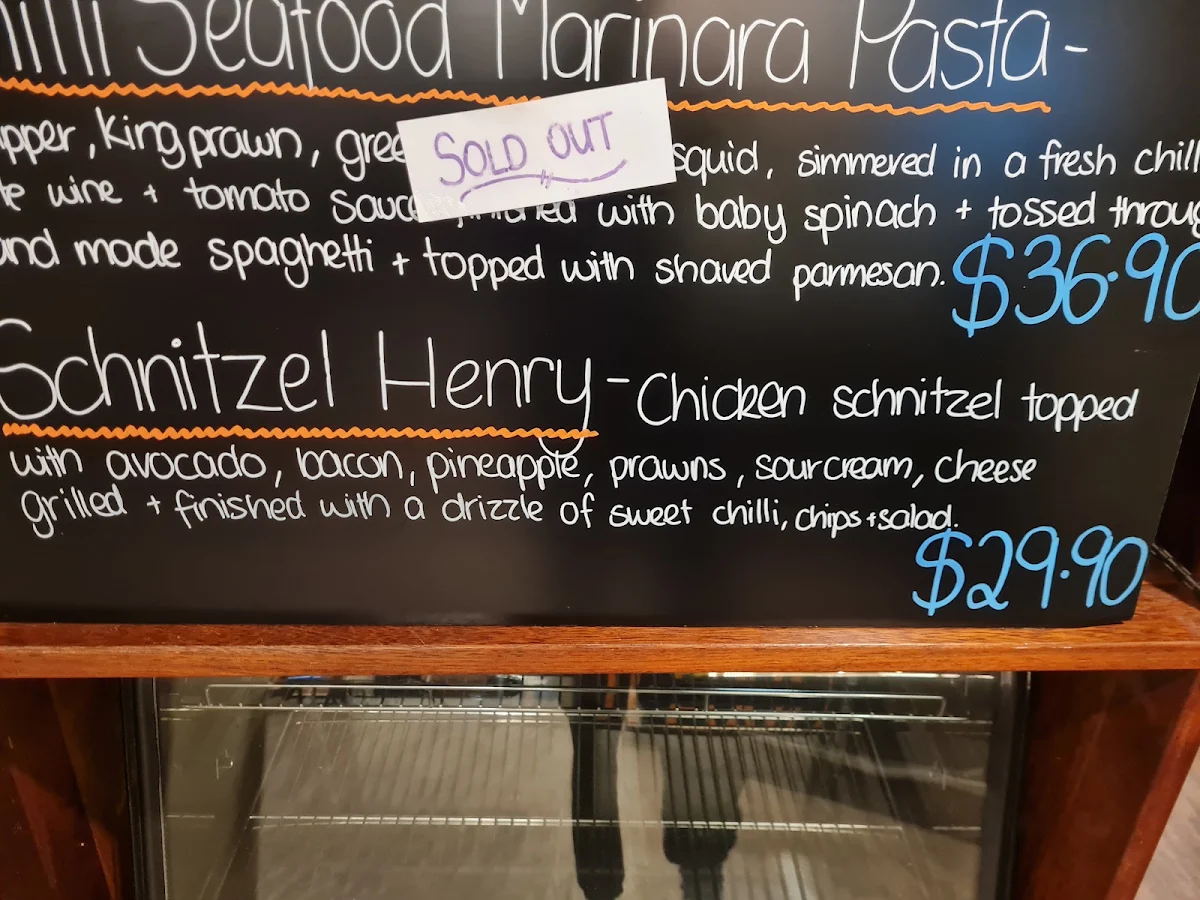 Seafood Marinara Pasta-
King prawn, squid, simmered in a fresh
wine + tomato with baby spinach + tossed
made spaghetti + topped with shaved parmesan. $36.90
SOLD OUT
Schnitzel Henry - Chicken schnitzel topped
with avocado, bacon, pineapple, prawns, sour cream, cheese
grilled + finished with a drizzle of sweet chilli, chips + salad.
$29.90